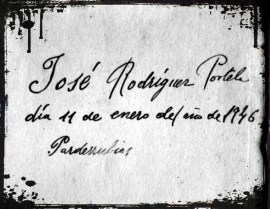 José Rodríguez Portela
día 11 de enero del año de 1946
Parderrubias